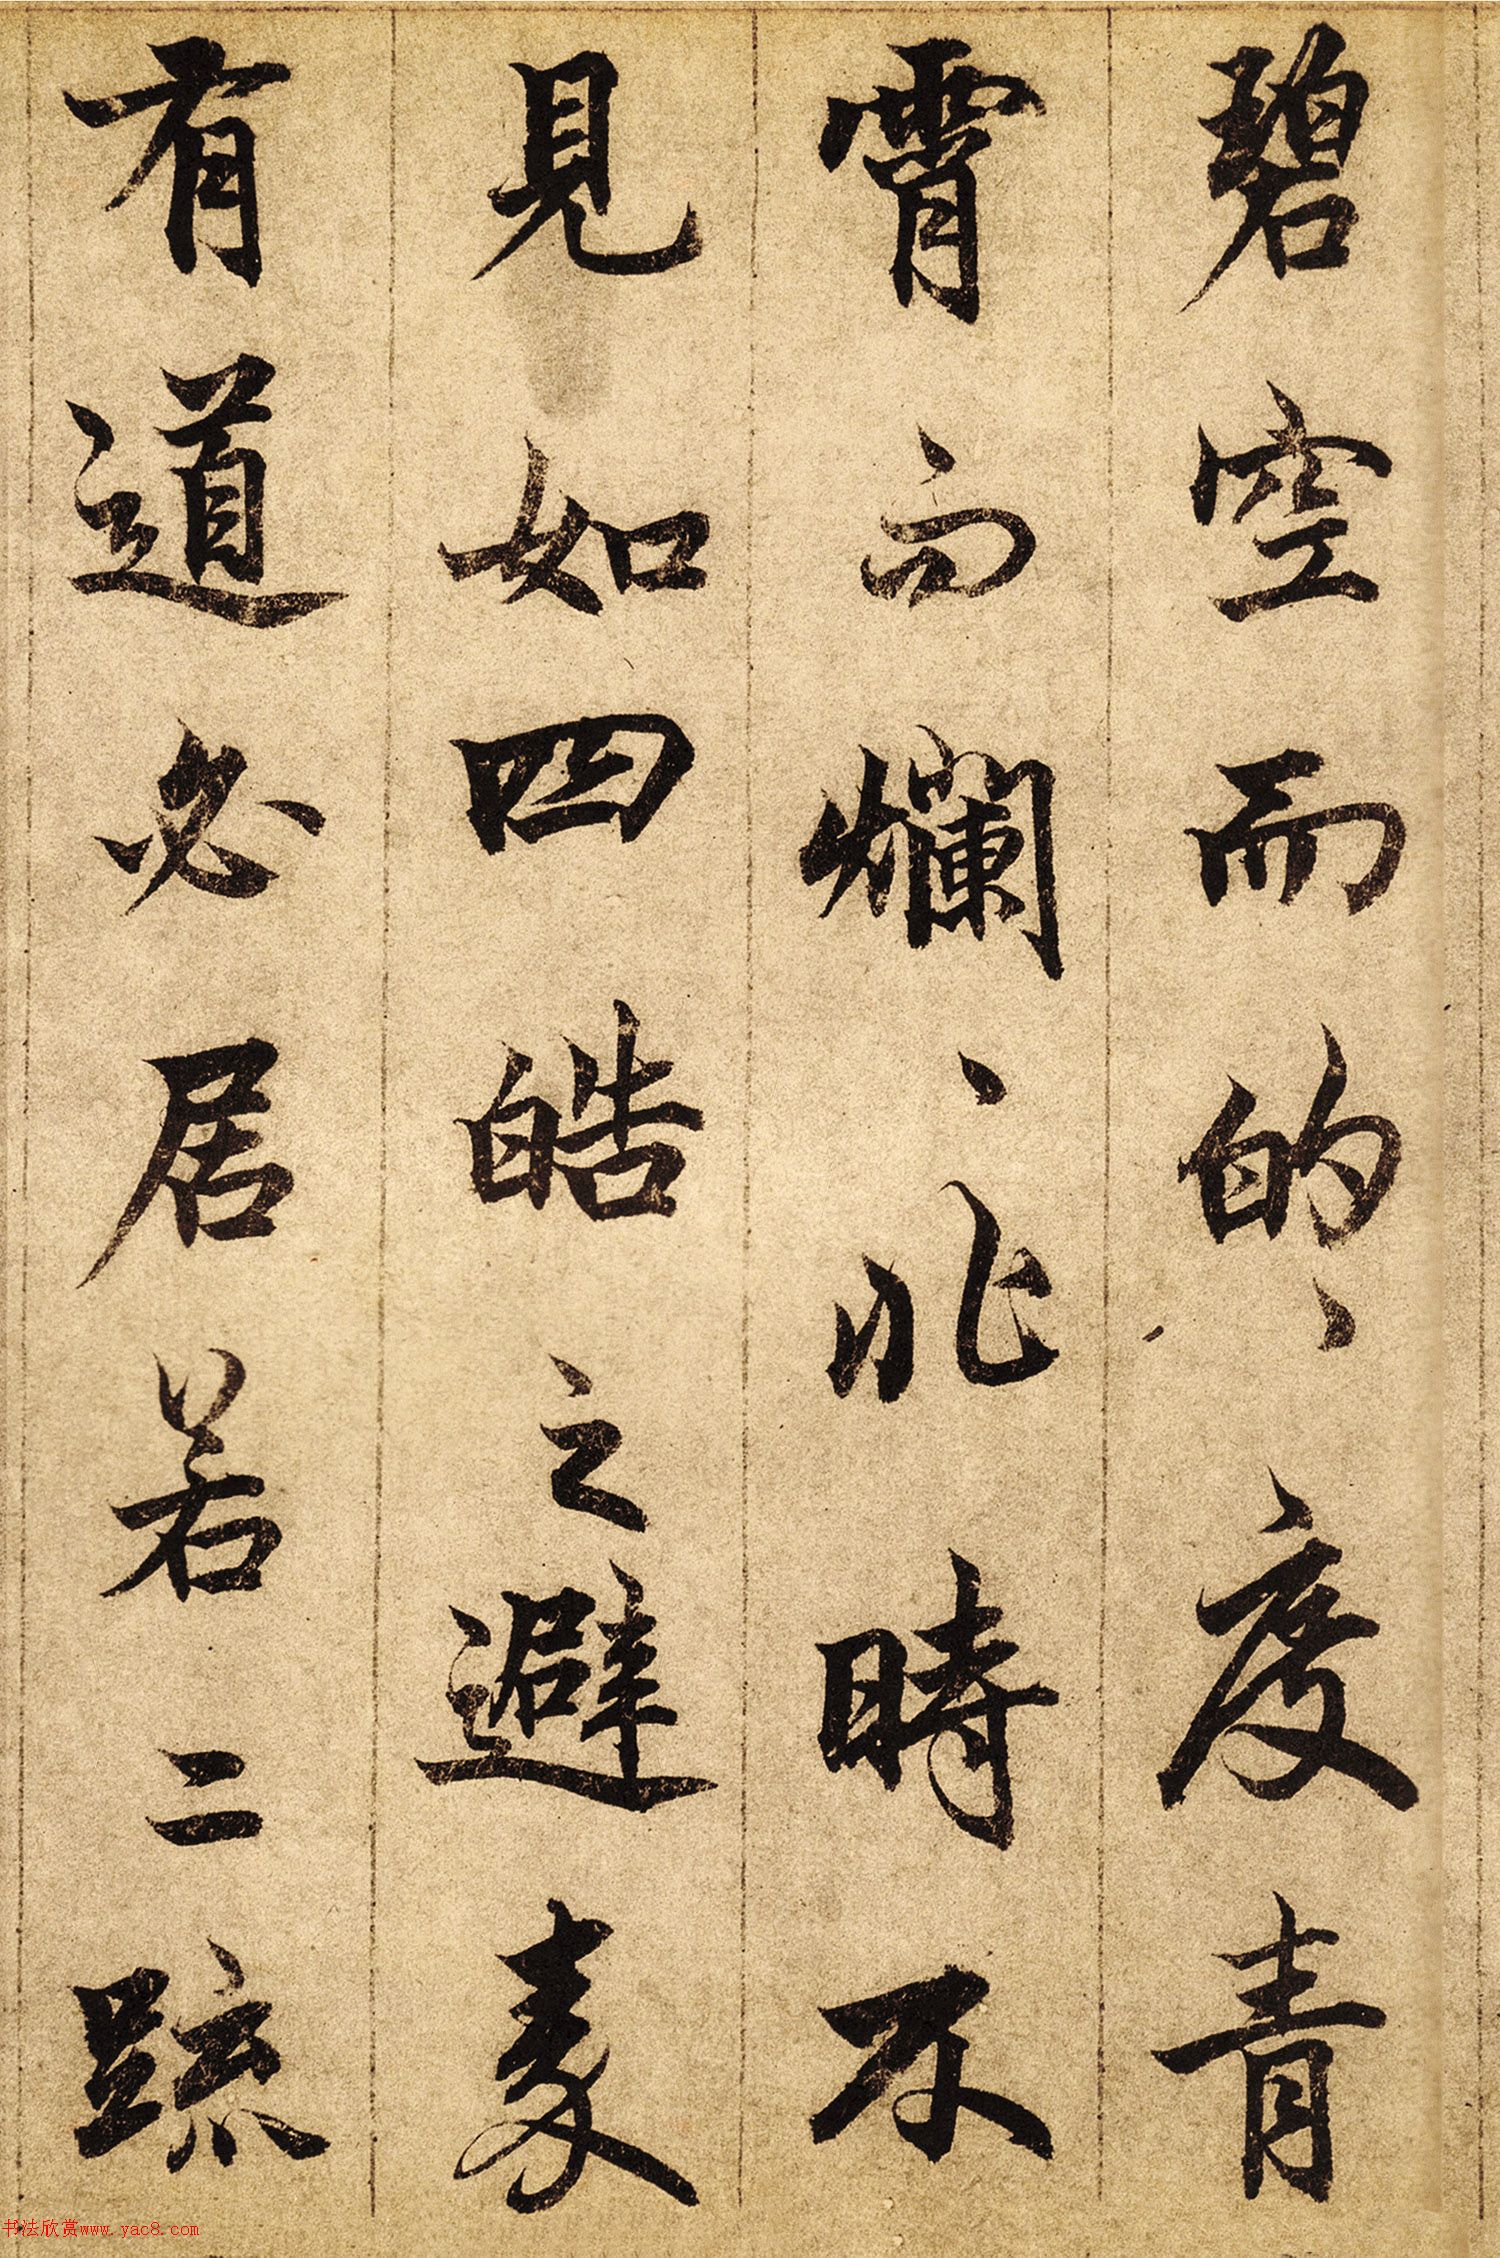 碧空而的的度青
霄而爛爛非時不
見如四皓之避秦
有道必居若二疏
书法欣赏www.yac8.com